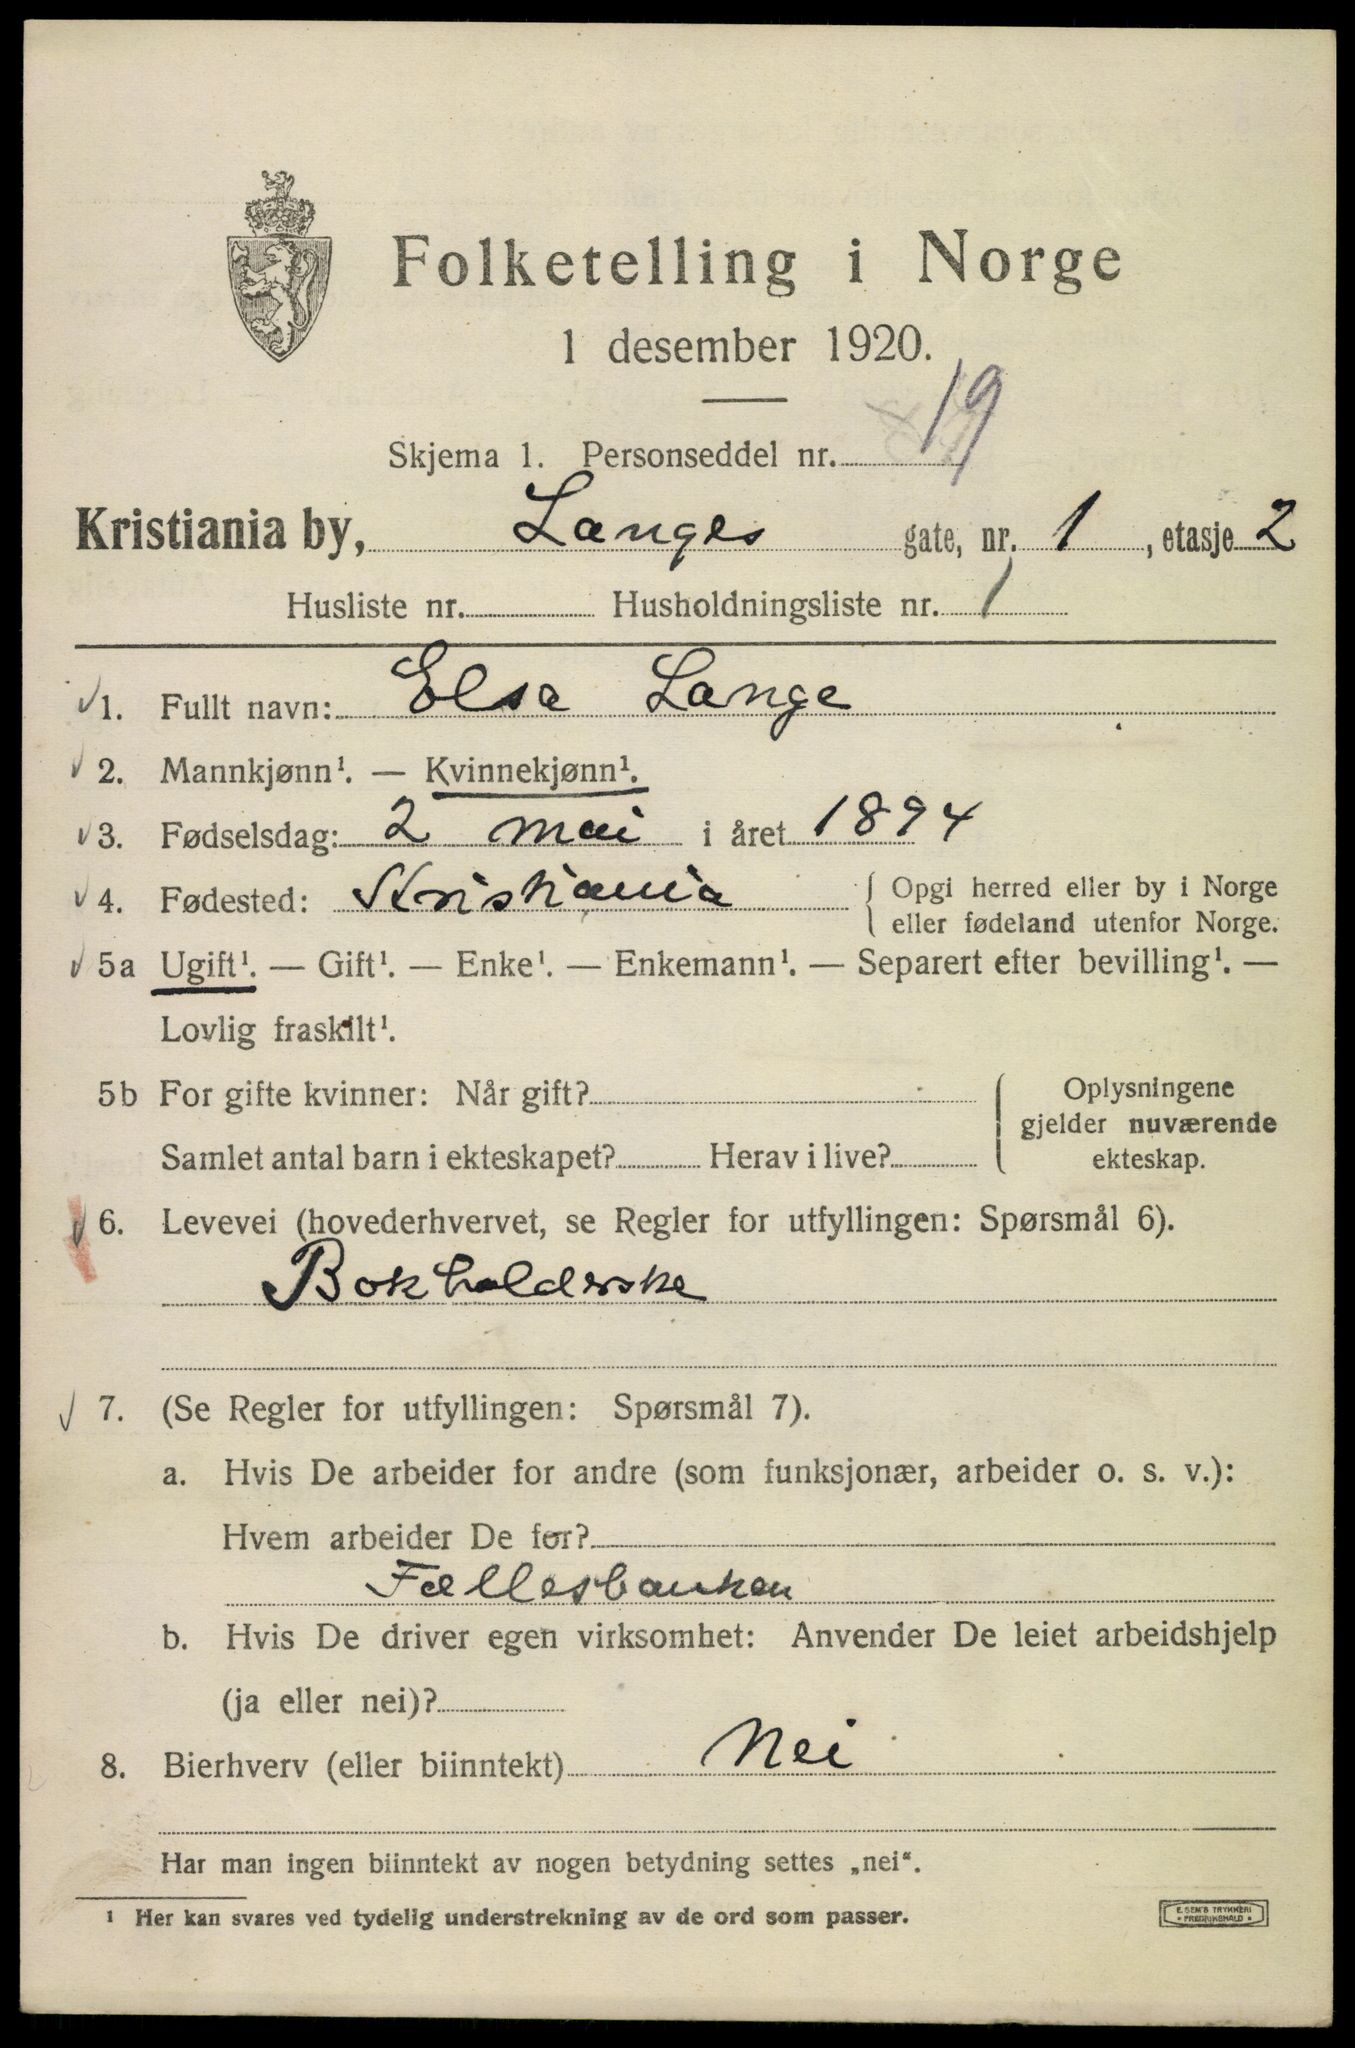 Folketelling i Norge
1 desember 1920.
Skjema 1. Personseddel nr. 19
Kristiania by, Langes gate, nr. 1, etasje 2
Husliste nr. Husholdningsliste nr. 1
1. Fullt navn: Elsa Lange
2. Mannkjønn¹. — Kvinnekjønn¹.
3. Fødselsdag: 2 mai i året 1894
4. Fødested: Kristiania { Opgi herred eller by i Norge
eller fødeland utenfor Norge.
5a Ugift¹. — Gift¹. — Enke¹. — Enkemann¹. — Separert efter bevilling¹. —
Lovlig fraskilt¹.
5b For gifte kvinner: Når gift? { Oplysningene
gjelder nuværende
Samlet antal barn i ekteskapet? Herav i live? ekteskap.
6. Levevei (hovederhvervet, se Regler for utfyllingen: Spørsmål 6).
Bokholderske
7. (Se Regler for utfyllingen: Spørsmål 7).
a. Hvis De arbeider for andre (som funksjonær, arbeider o. s. v.):
Hvem arbeider De for?
Fællesbanken
b. Hvis De driver egen virksomhet: Anvender De leiet arbeidshjelp
(ja eller nei)?
8. Bierhverv (eller biinntekt) Nei
Har man ingen biinntekt av nogen betydning settes „nei“.
¹ Her kan svares ved tydelig understrekning av de ord som passer.
E. SEM'S TRYKKERI
• FREDRIKSHALD •